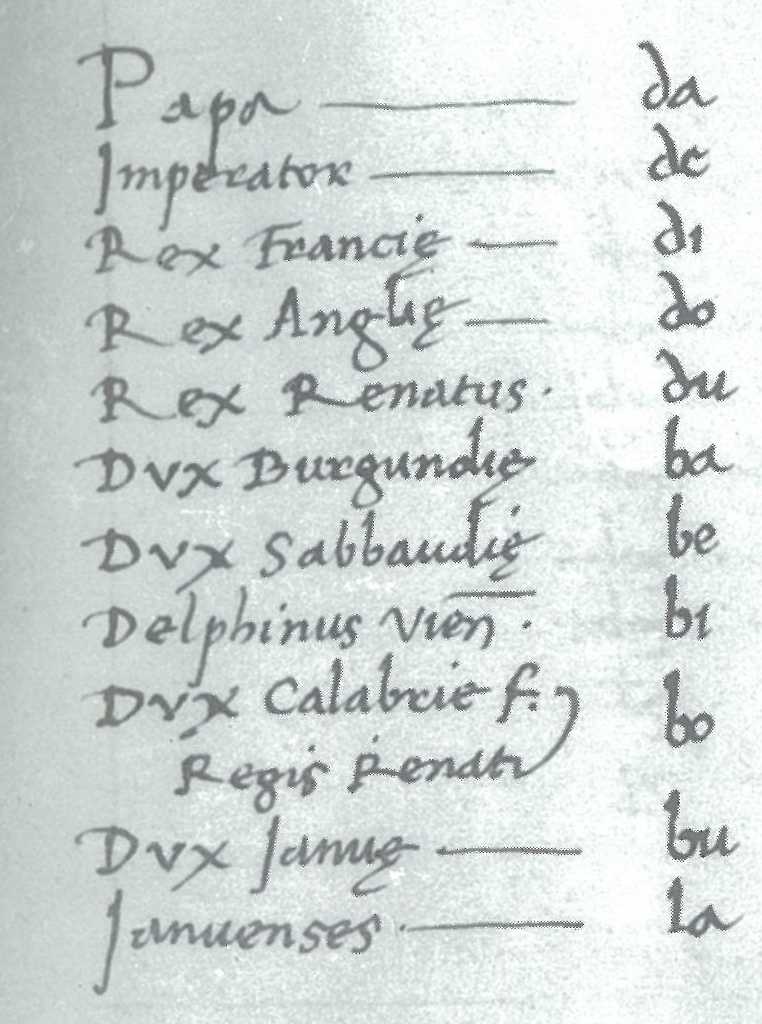 Papa — da
Imperator — de
Rex Francię — di
Rex Anglię — do
Rex Renatus · du
Dvx Burgundię ba
Dvx Sabbaudię be
Delphinus Vien̄ · bi
Dvx Calabrie f. bo
Regis Renati
Dvx Januę — bu
Januenses · — la